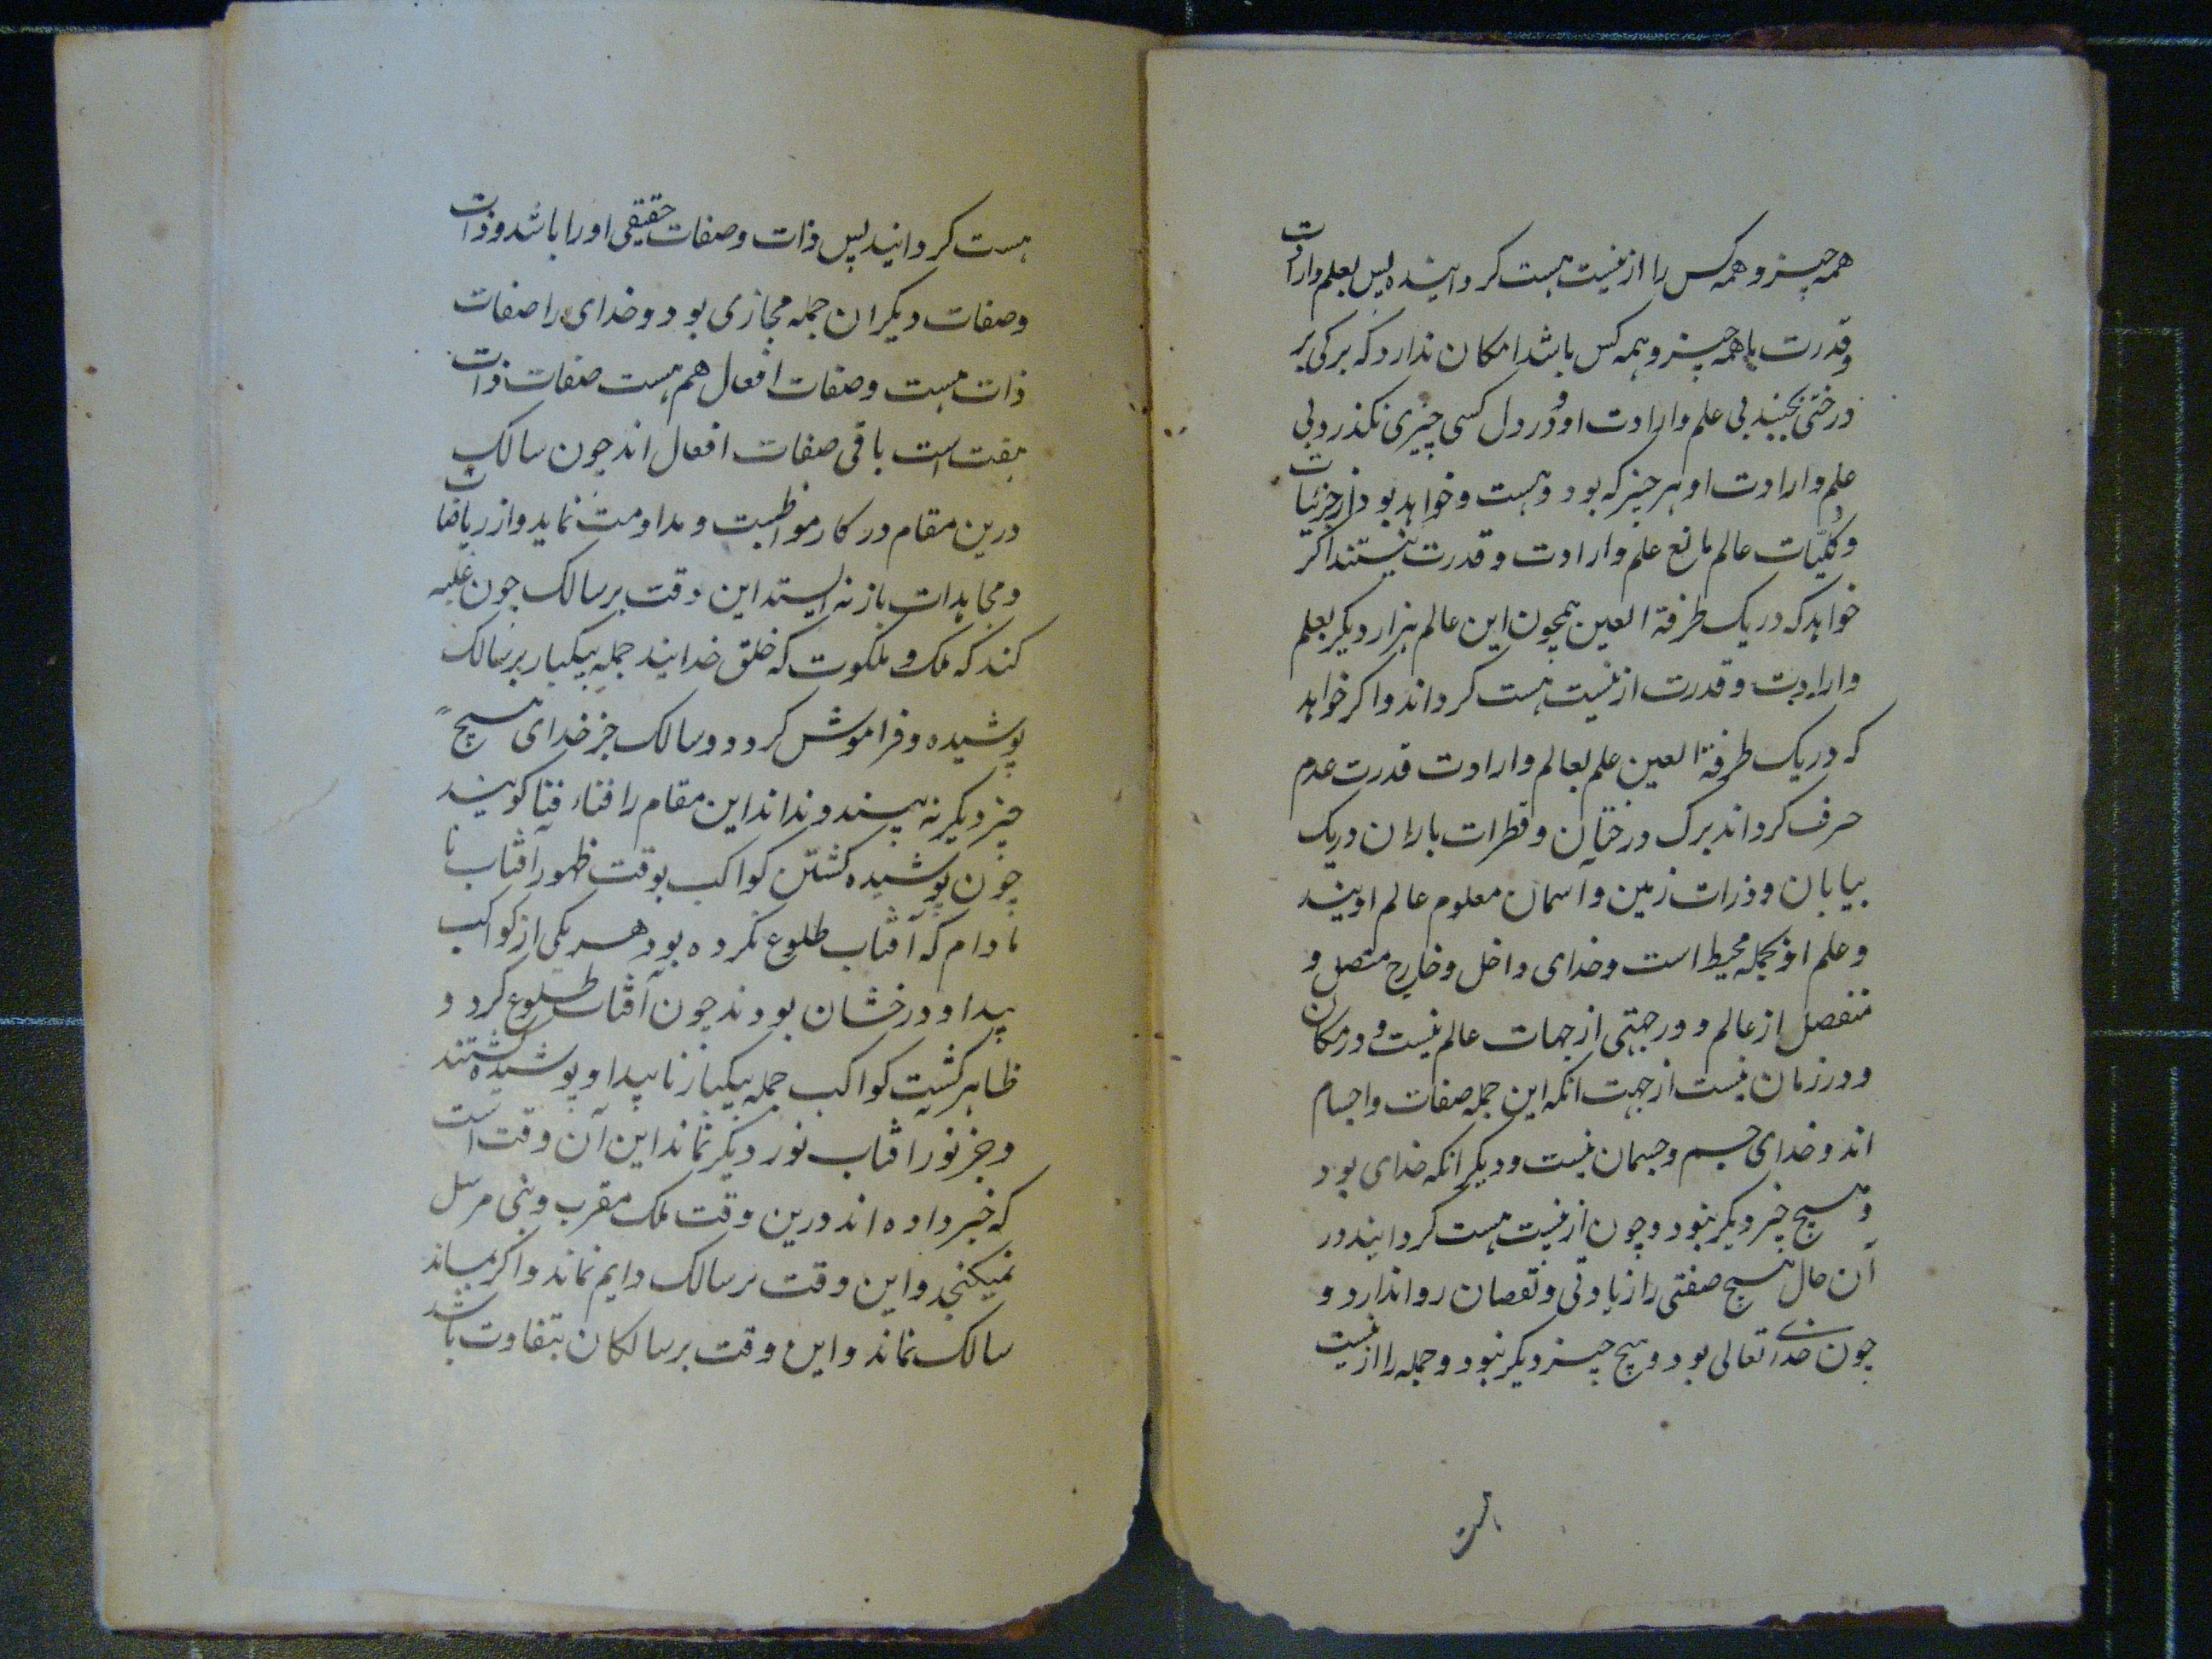 همه چیز و همه کس را از نیست هست کردانیده پس بعلم و ارادت
و قدرت با همه چیز و همه کس باشد امکان ندارد که برکی بر
درختی بجنبد بی علم و ارادت او و در دل کسی چیزی نکذرد بی
علم و ارادت او هر چیز که بود و هست و خواهد بود از جزئیات
و کلیّات عالم مانع علم و ارادت و قدرت نیستند اکر
خواهد که در یک طرفة العین همچون این عالم هزار دیکر بعلم
و ارادت و قدرت از نیست هست کرداند و اکر خواهد
که در یک طرفة العین علم بعالم و ارادت قدرت عدم
صرف کرداند برک درختان و قطرات باران و ریک
بیابان و ذرات زمین و آسمان معلوم عالم اویند
و علم او بجمله محیط است و خدای داخل و خارج متصل و
منفصل از عالم و در جهتی از جهات عالم نیست و در مکان
و در زمان نیست از جهت انکه این جمله صفات و اجسام
اند و خدای جسم و جسمان نیست و دیکر انکه خدای بود
و هیچ چیز دیکر نبود و چون از نیست هست کردانید در
آن حال هیچ صفتی را زیادتی و نقصان روا ندارد و
چون خدای تعالی بود و هیچ چیز دیکر نبود و جمله را از نیست
هست کردانید پس ذات و صفات حقیقی او را باشد و ذات
و صفات دیکران جمله مجازی بود و خدای را صفات
ذات هست و صفات افعال هم هست صفات ذات
هفت است باقی صفات افعال اند چون سالک
درین مقام در کار مواظبت و مداومت نماید و از ریاضات
و مجاهدات باز نه ایستد این وقت بر سالک چون غلبه
کند که ملک و ملکوت که خلق خدایند جمله بیکبار بر سالک
پوشیده و فراموش کردد و سالک جز خدای هیچ
چیز دیکر نه بیند و نداند این مقام را فناء فنا کویند
چون پوشیده کشتن کواکب بوقت ظهور آفتاب تا
مادام که آفتاب طلوع نکرده بود هر یکی از کواکب
پیدا و درخشان بودند چون آفتاب طلوع کرد و
ظاهر کشت کواکب جمله بیکبار ناپیدا و پوشیده کشتند
و جز نور افتاب نور دیکر نماند این آن وقت است
که خبر داده اند درین وقت ملک مقرب و نبی مرسل
نمیکنجد و این وقت بر سالک دایم نماند و اکر بماند
سالک نماند و این وقت بر سالکان بتفاوت باشد